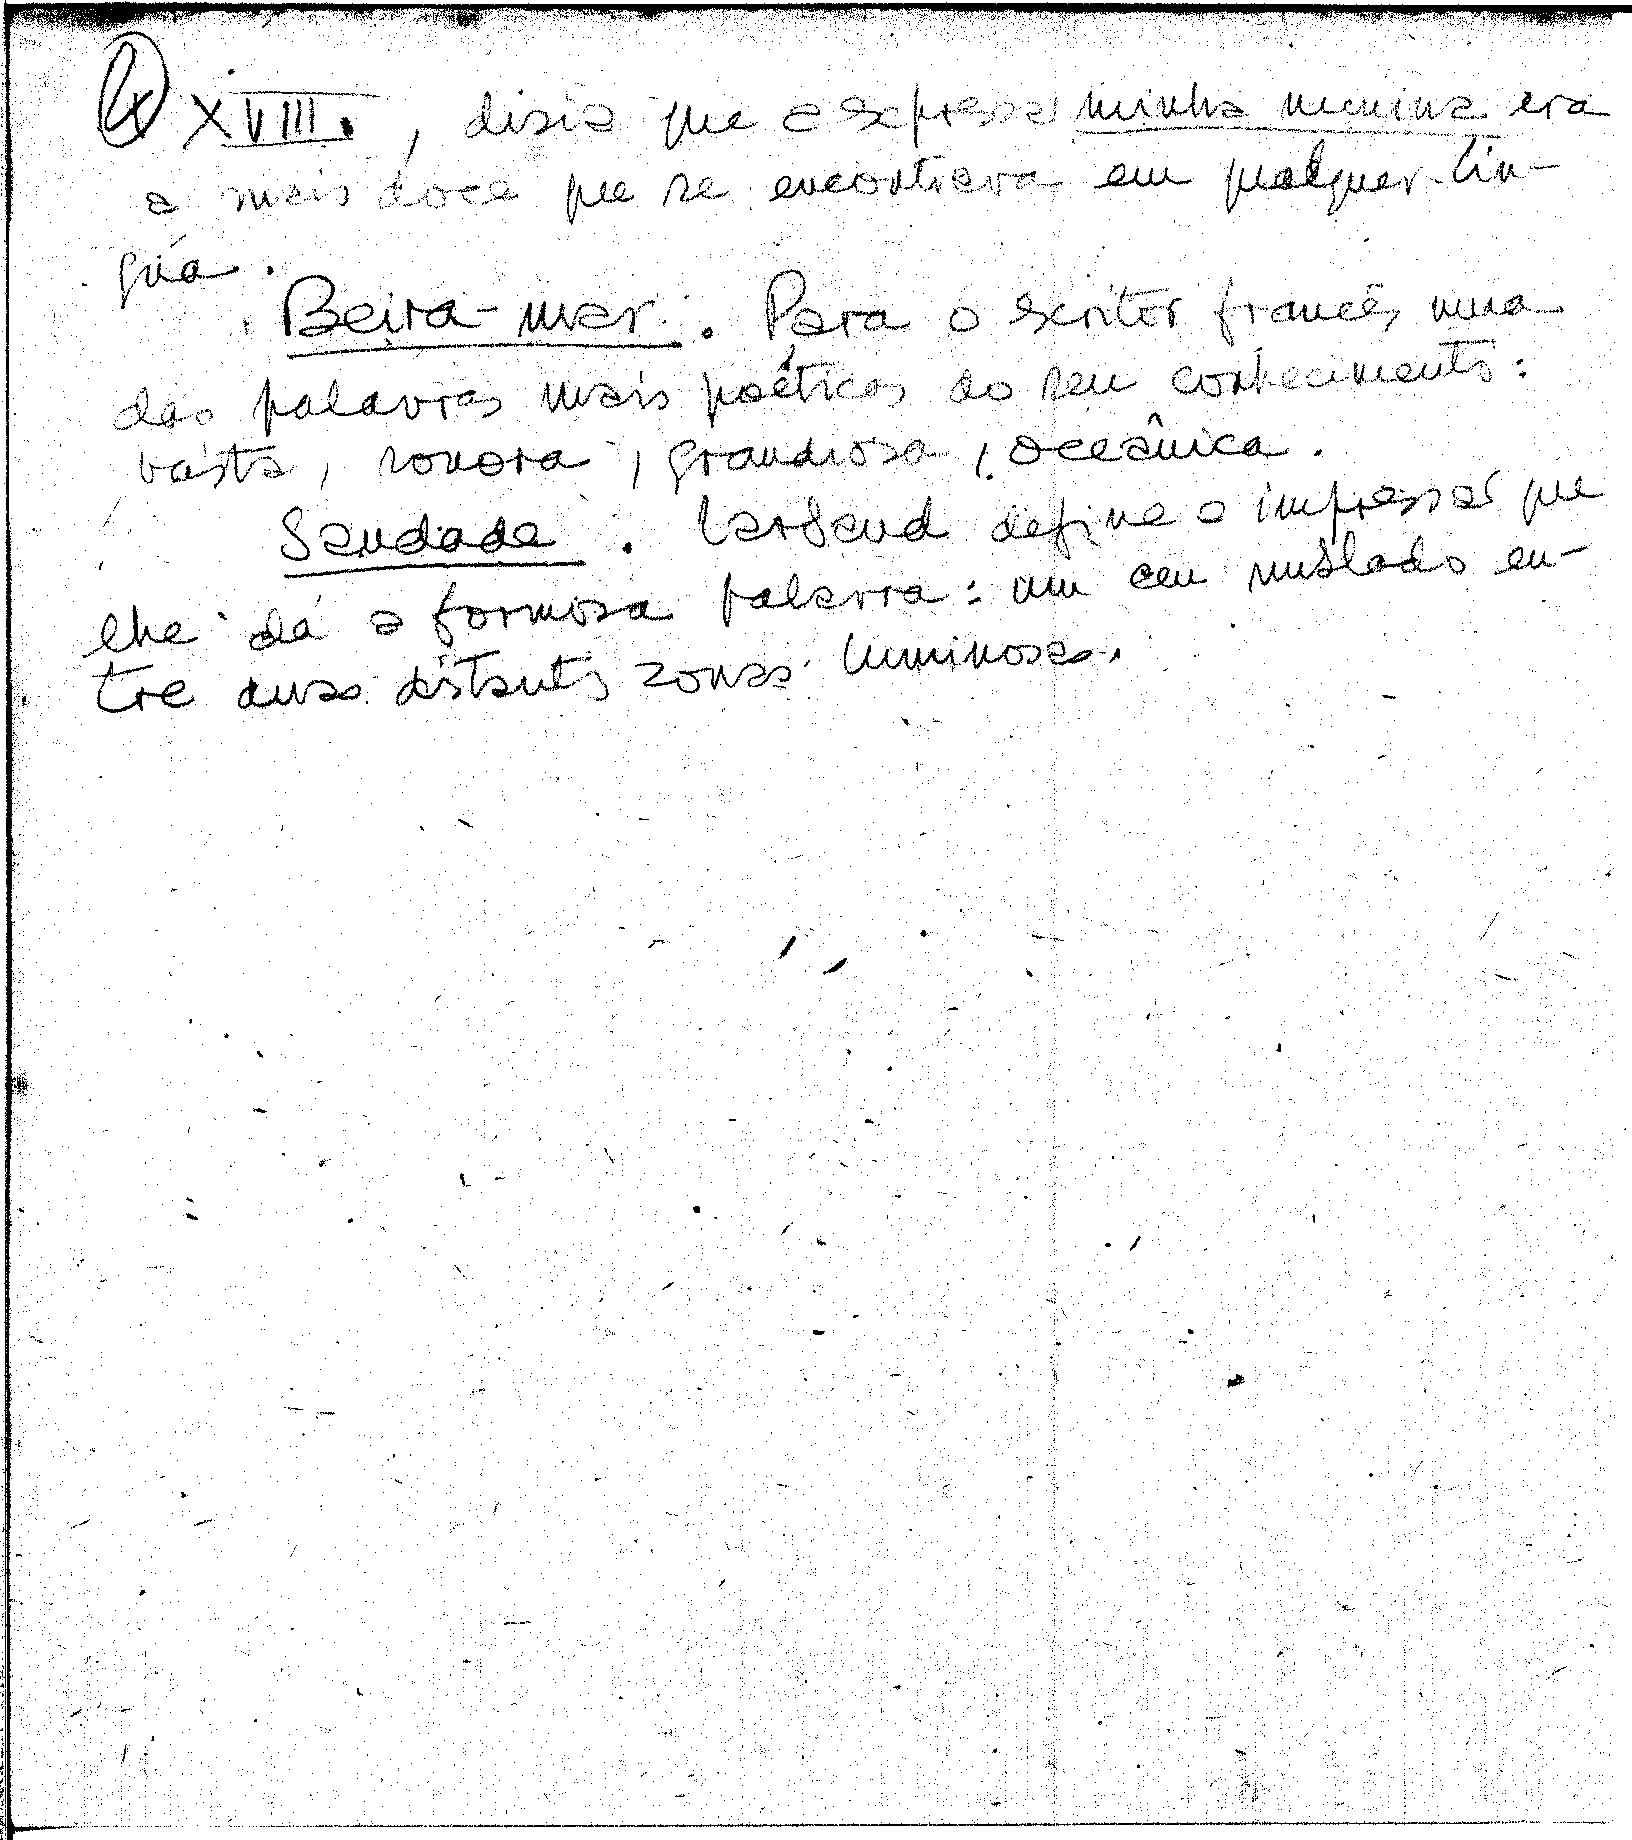 ④ XVIII., dizia que a expressão minha menina era
a mais doce que se encontrava em qualquer lín-
gua.
Beira-mar. Para o escritor francês, uma
das palavras mais poéticas do seu conhecimento:
vasta, sonora, grandiosa, oceânica.
Saudade. Larbaud define a impressão que
lhe dá a formosa palavra: um céu nublado en-
tre duas distantes zonas luminosas.